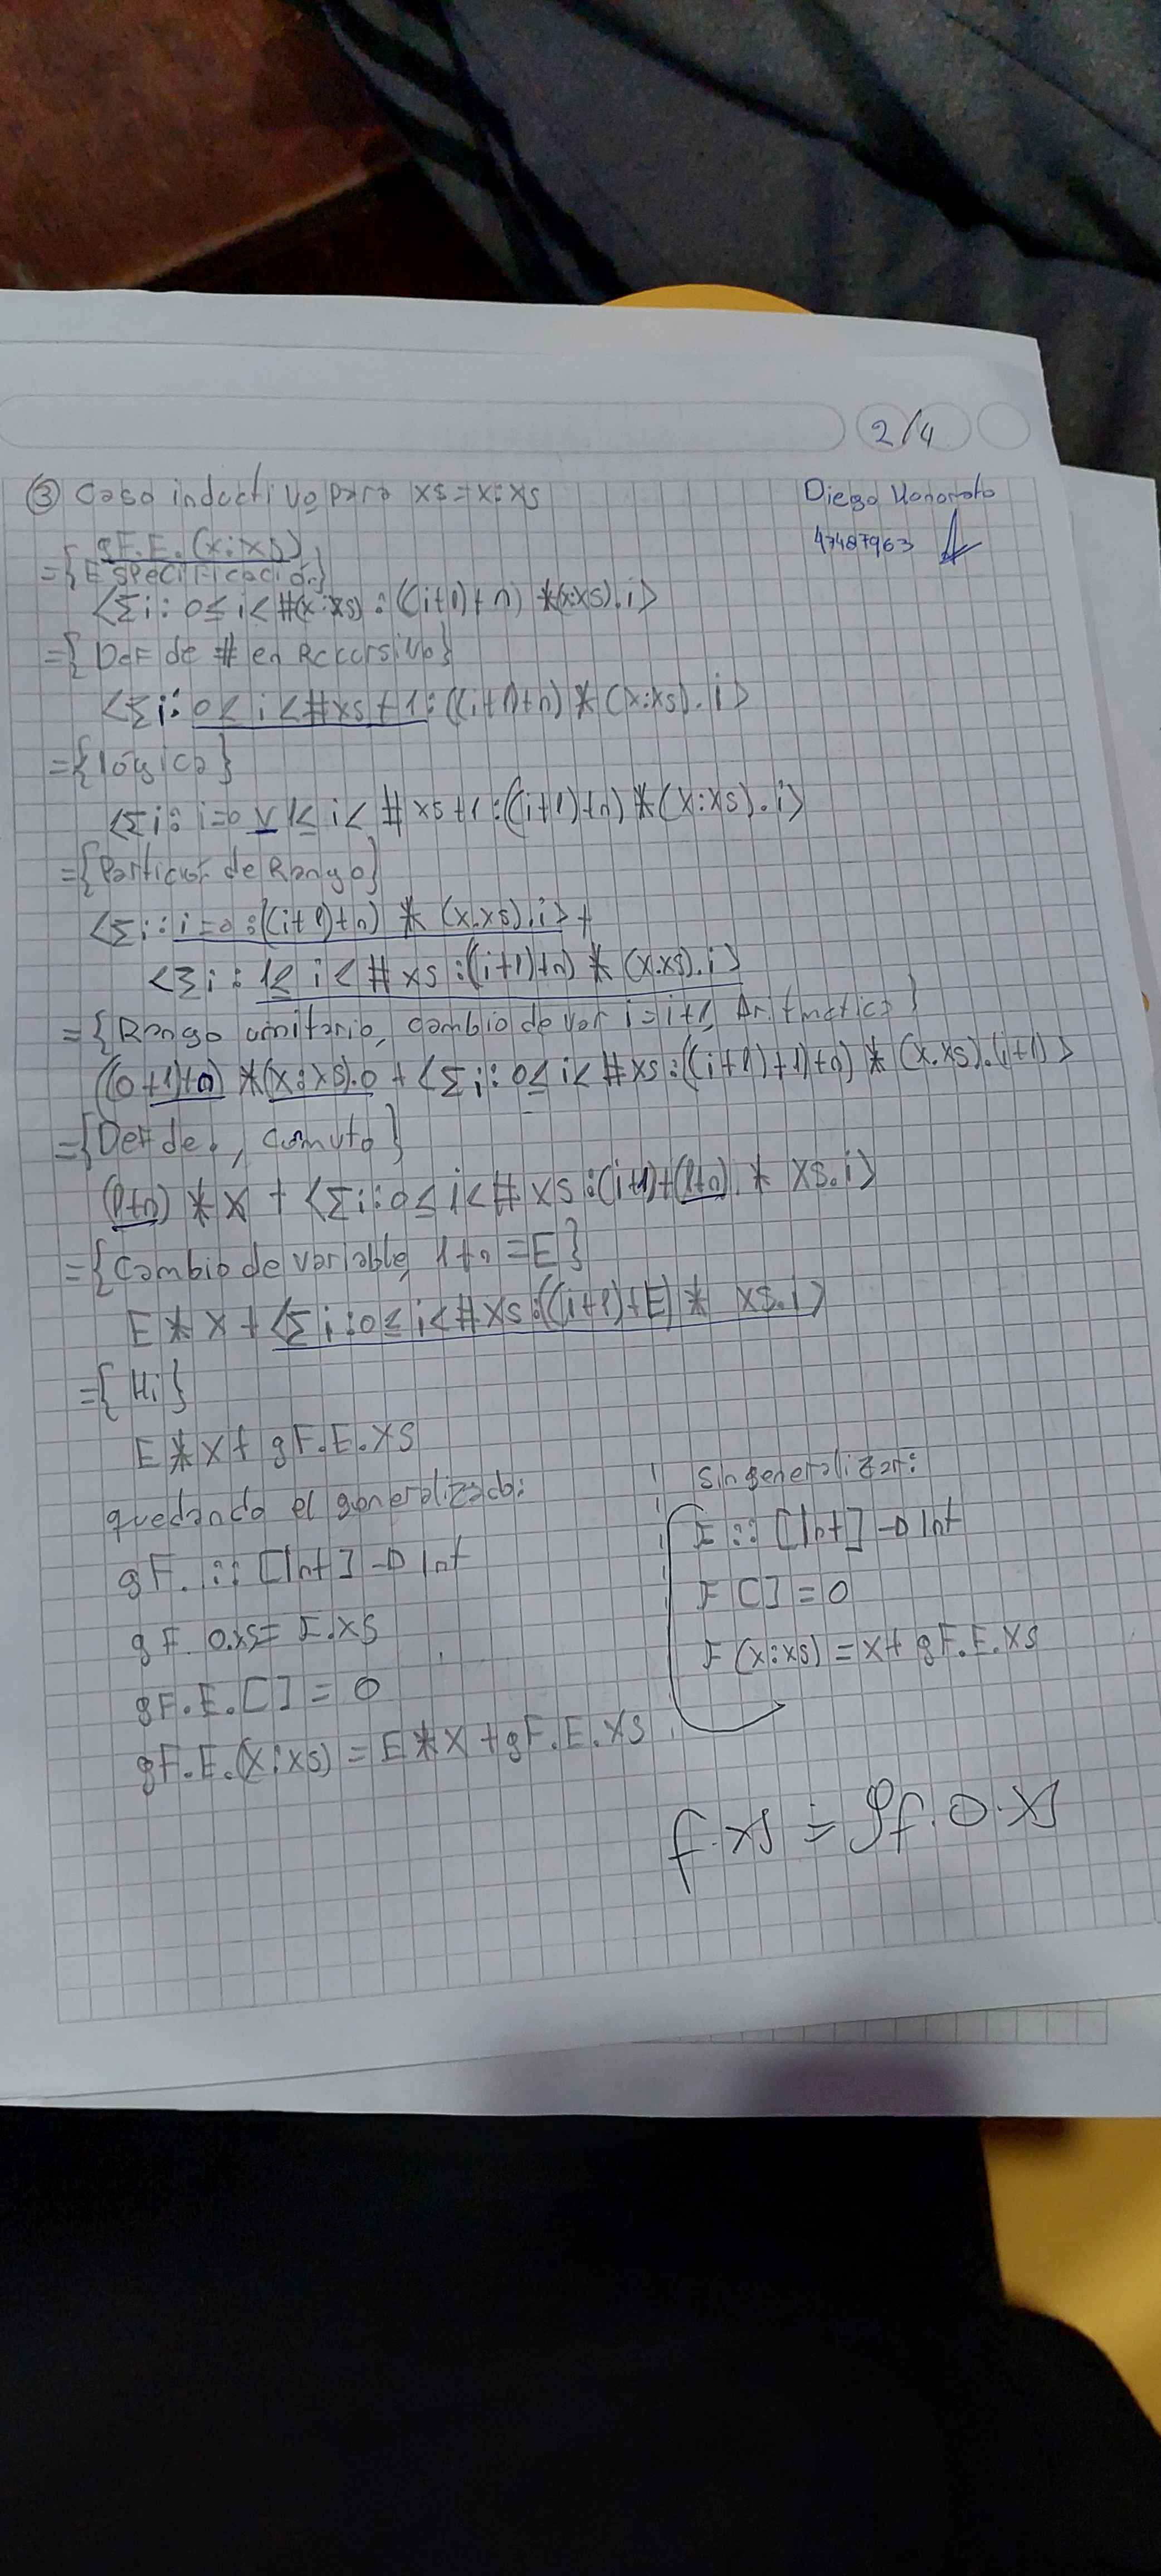 2/4
Diego Honorato
47487963
③ Caso inductivo para xs=x:xs
gF.E.(x:xs)
={Especificación}
<Σi: 0≤i<#(x:xs) : ((i+1)+n) *(x:xs).i>
={Def de # en Recursivo}
<Σi: 0≤i<#xs+1: ((i+1)+n) * (x:xs).i>
={lógica}
<Σi: i=0 ∨ 1≤i<#xs+1:((i+1)+n) * (x:xs).i>
={Partición de Rango}
<Σi: i=0 :((i+1)+n) * (x.xs).i> +
<Σi: 1≤i<#xs :((i+1)+n) * (x.xs).i>
={Rango unitario, cambio de var i=i+1, Aritmetica}
((0+1)+n) *(x:xs).0 + <Σi: 0≤i<#xs:((i+1)+1)+n) * (x.xs).(i+1)>
={Def de . , Conmuto}
(1+n) * x + <Σi:0≤i<#xs:(i+1)+(1+n). * xs.i>
={Cambio de variable, 1+n=E}
E * x + <Σi:0≤i<#xs:((i+1)+E) * xs.i>
={Hi}
E*x+gF.E.xs
quedando el generalizado:
gF. :: [Int] -> Int
gF. 0.xs= F.xs
gF.E.[] = 0
gF.E.(x:xs) = E*x+gF.E.xs
Sin generalizar:
F :: [Int] -> Int
F [] = 0
F (x:xs) = x+ gF.E.xs
f.xs ≐ gf.0.xs